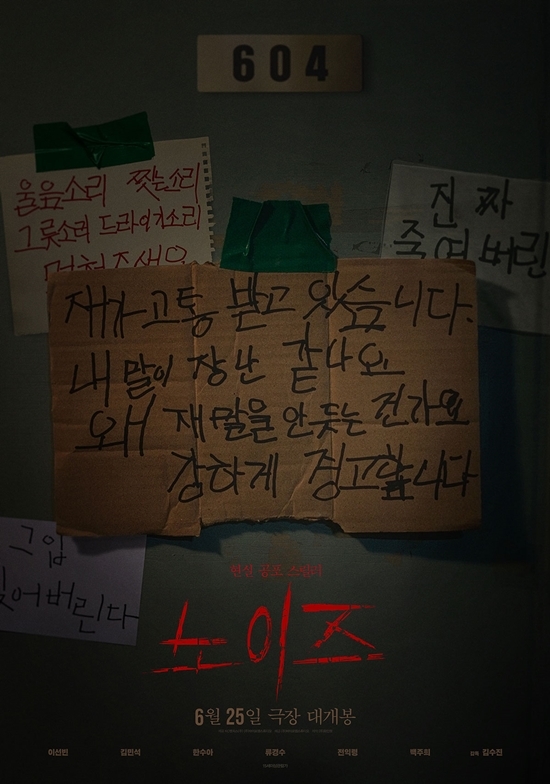 604
울음소리 찢는소리
그릇소리 드라이기소리
멈춰주세요
진짜
죽여버린
재가 고통 받고 있습니다.
내 말이 장난 같나요
왜 재말을 안듣는 건가요
강하게 경고합니다
그입
찢어버린다
현실 공포 스릴러
노이즈
6월 25일 극장 대개봉
이선빈 김민석 한수아 류경수 전익령 백주희 감독 김수진